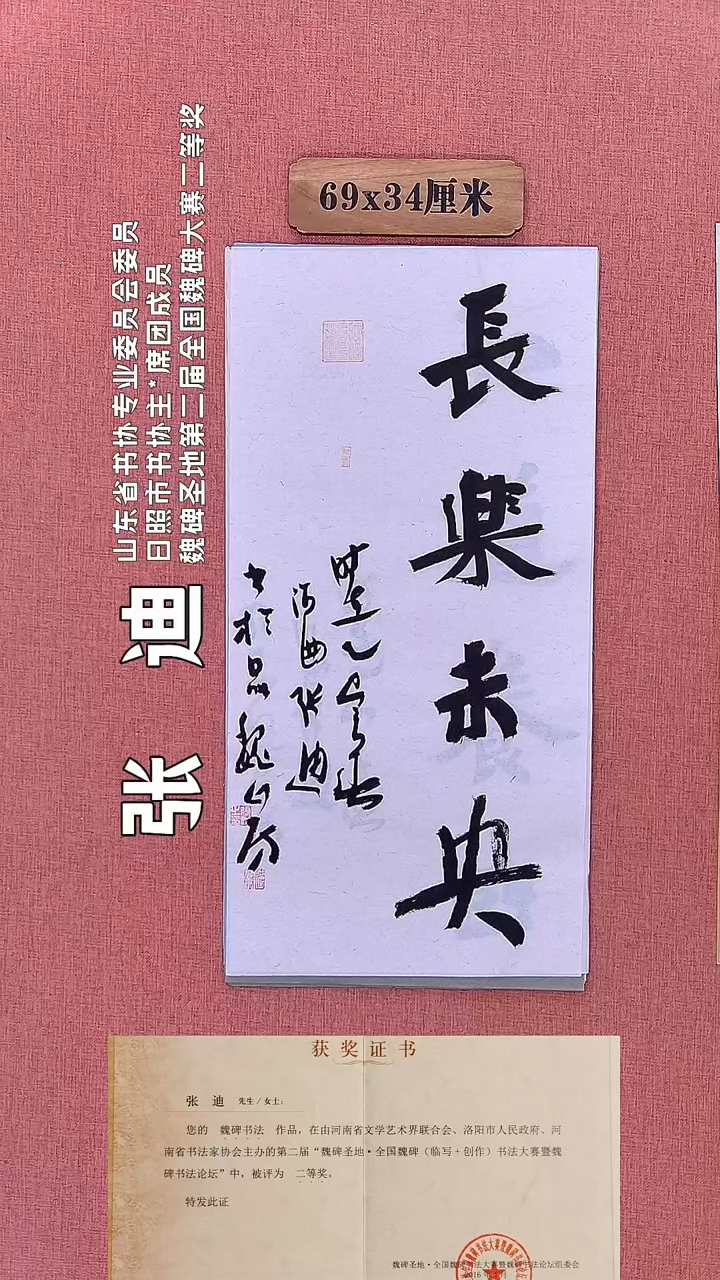 69x34厘米
長樂未央
时在乙巳年春
海曲张迪
书于品魏山房
张 迪
山东省书协专业委员会委员
日照市书协主*席团成员
魏碑圣地第二届全国魏碑大赛二等奖
获奖证书
张 迪 先生/女士：
您的 魏碑书法 作品，在由河南省文学艺术界联合会、洛阳市人民政府、河
南省书法家协会主办的第二届“魏碑圣地·全国魏碑（临写+创作）书法大赛暨魏
碑书法论坛”中，被评为 二等奖。
特发此证
魏碑圣地·全国魏碑书法大赛暨魏碑书法论坛组委会